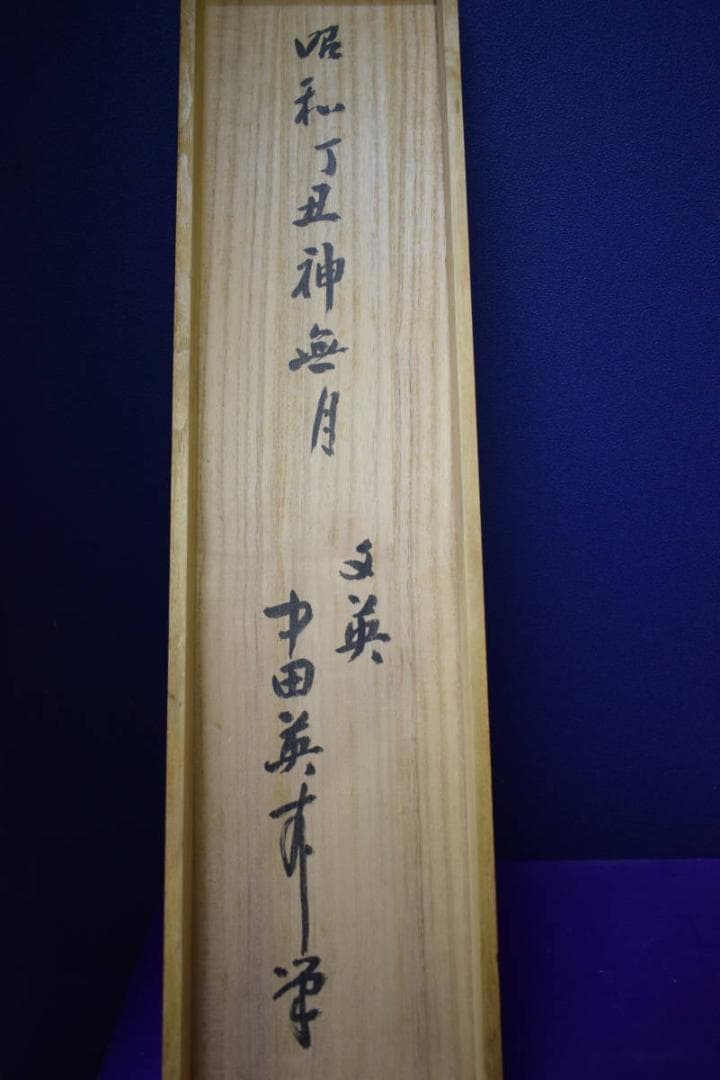 昭和丁丑神無月
文英
中田英筆